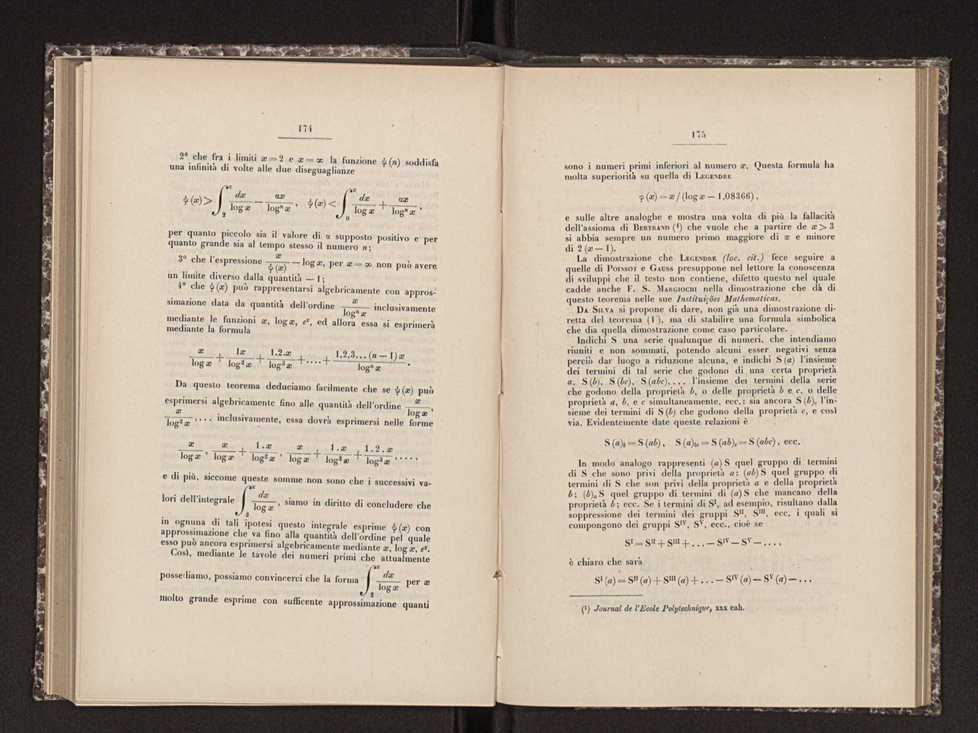 174
2ª che fra i limiti x = 2 e x = ∞ la funzione ψ(n) soddisfa
una infinità di volte alle due diseguaglianze
ψ(x) > ∫₂ˣ dx/log x − αx/logⁿ x , ψ(x) < ∫₀ˣ dx/log x + αx/logⁿ x ,
per quanto piccolo sia il valore di α supposto positivo e per
quanto grande sia al tempo stesso il numero n;
3º che l'espressione x/ψ(x) − log x, per x = ∞ non può avere
un limite diverso dalla quantità − 1;
4º che ψ(x) può rappresentarsi algebricamente con appros-
simazione data da quantità dell'ordine x/logⁿ x inclusivamente
mediante le funzioni x, log x, eˣ, ed allora essa si esprimerà
mediante la formula
x/log x + 1x/log² x + 1.2.x/log³ x + .... + 1.2.3...(n − 1) x/logⁿ x .
Da questo teorema deduciamo facilmente che se ψ(x) può
esprimersi algebricamente fino alle quantità dell'ordine x/log x,
x/log² x .... inclusivamente, essa dovrà esprimersi nelle forme
x/log x , x/log x + 1.x/log² x , x/log x + 1.x/log² x + 1.2.x/log³ x .....
e di più, siccome queste somme non sono che i successivi va-
lori dell'integrale ∫₂ˣ dx/log x , siamo in diritto di concludere che
in ognuna di tali ipotesi questo integrale esprime ψ(x) con
approssimazione che va fino alla quantità dell'ordine pel quale
esso può ancora esprimersi algebricamente mediante x, log x, eˣ.
Così, mediante le tavole dei numeri primi che attualmente
possediamo, possiamo convincerci che la forma ∫₂ˣ dx/log x per x
molto grande esprime con sufficente approssimazione quanti
175
sono i numeri primi inferiori al numero x. Questa formula ha
molta superiorità su quella di Legendre
φ(x) = x/(log x − 1,08366),
e sulle altre analoghe e mostra una volta di più la fallacità
dell'assioma di Bertrand (¹) che vuole che a partire da x > 3
si abbia sempre un numero primo maggiore di x e minore
di 2 (x − 1).
La dimostrazione che Legendre (loc. cit.) fece seguire a
quelle di Poinsot e Gauss presuppone nel lettore la conoscenza
di sviluppi che il testo non contiene, difetto questo nel quale
cadde anche F. S. Margiochi nella dimostrazione che dà di
questo teorema nelle sue Instituições Mathematicas.
Da Silva si propone di dare, non già una dimostrazione di-
retta del teorema (1'), ma di stabilire una formula simbolica
che dia quella dimostrazione come caso particolare.
Indichi S una serie qualunque di numeri, che intendiamo
riuniti e non sommati, potendo alcuni esser negativi senza
perciò dar luogo a riduzione alcuna, e indichi S (a) l'insieme
dei termini di tal serie che godono di una certa proprietà
a, S (b), S (bc), S (abc), ... l'insieme dei termini della serie
che godono della proprietà b, o delle proprietà b e c, o delle
proprietà a, b, e c simultaneamente, ecc.; sia ancora S (b)ₐ l'in-
sieme dei termini di S (b) che godono della proprietà c, e così
via. Evidentemente date queste relazioni è
S (a)_b = S (ab), S (a)_bc = S (ab)_c = S (abc), ecc.
In modo analogo rappresenti (a) S quel gruppo di termini
di S che sono privi della proprietà a; (ab) S quel gruppo di
termini di S che son privi della proprietà a e della proprietà
b; (b)ₐ S quel gruppo di termini di (a) S che mancano della
proprietà b; ecc. Se i termini di Sᴵ, ad esempio, risultano dalla
soppressione dei termini dei gruppi Sᴵᴵ, Sᴵᴵᴵ, ecc. i quali si
compongono dei gruppi Sᴵⱽ, Sⱽ, ecc., cioè se
Sᴵ = Sᴵᴵ + Sᴵᴵᴵ + ... − Sᴵⱽ − Sⱽ − ....
è chiaro che sarà
Sᴵ (a) = Sᴵᴵ (a) + Sᴵᴵᴵ (a) + ... − Sᴵⱽ (a) − Sⱽ (a) − ...
(¹) Journal de l'Ecole Polytechnique, xxx cah.